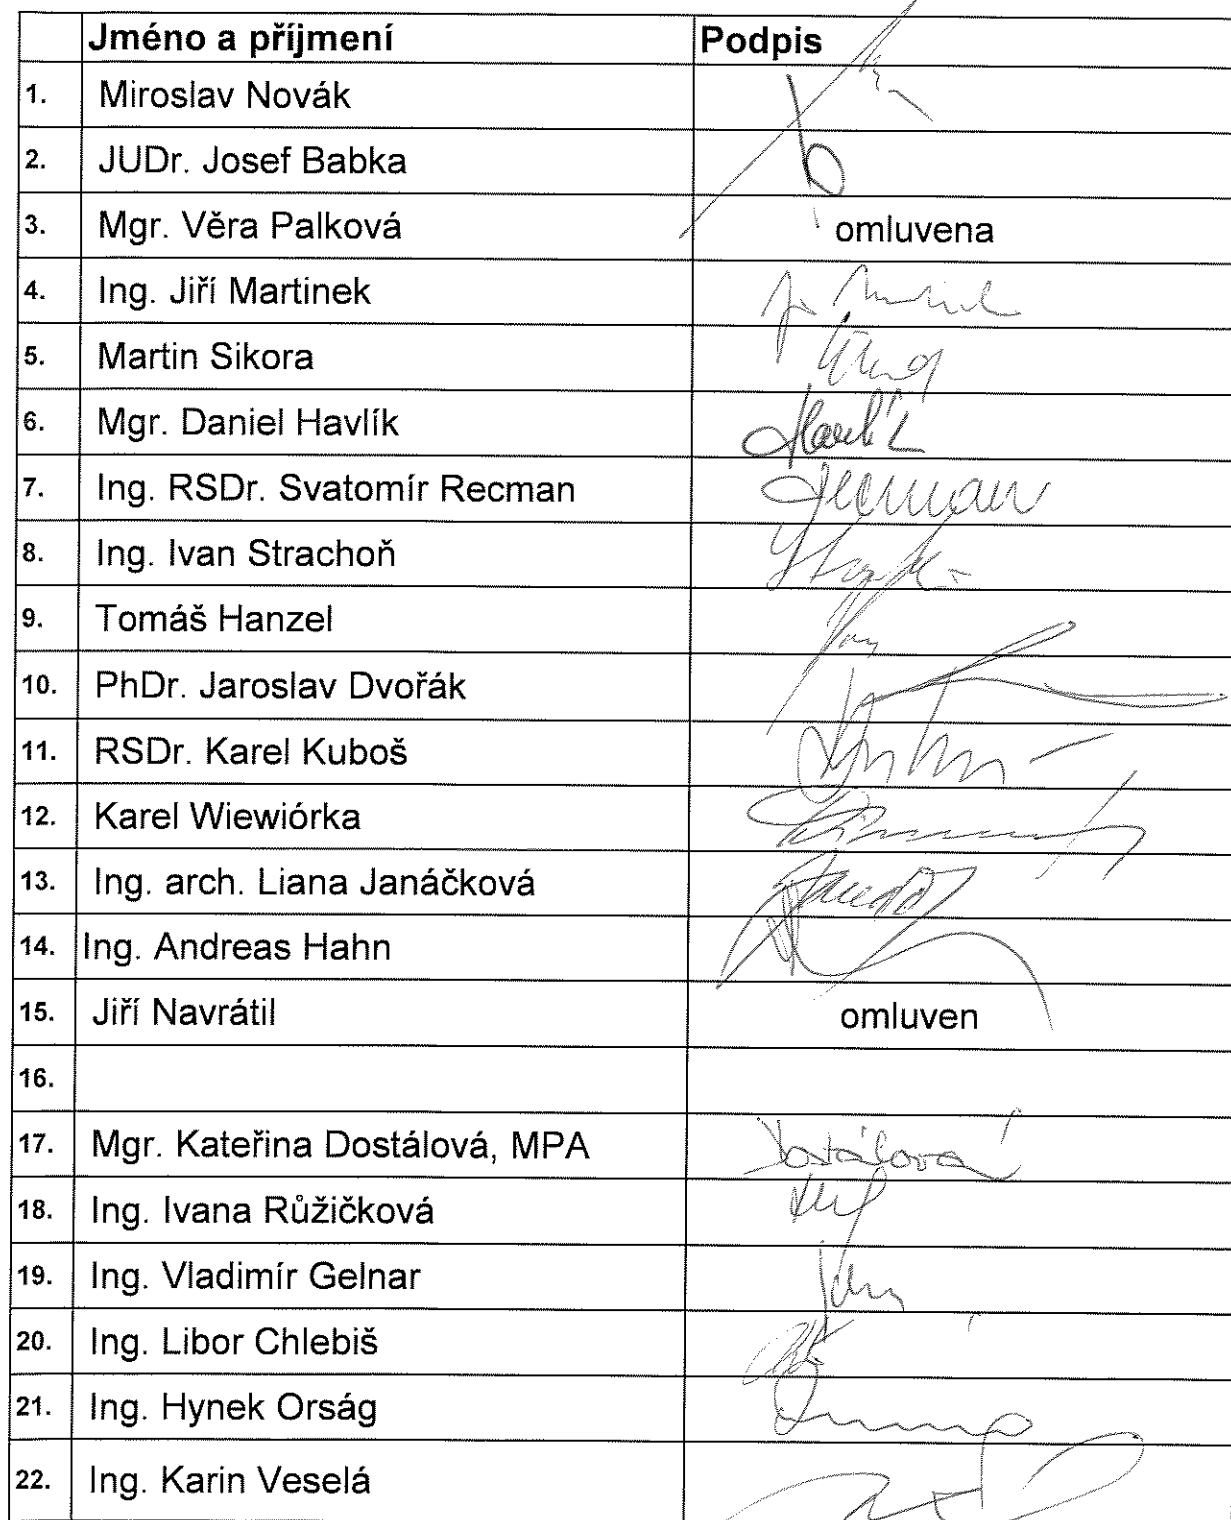 Jméno a příjmení Podpis
1. Miroslav Novák
2. JUDr. Josef Babka
3. Mgr. Věra Palková omluvena
4. Ing. Jiří Martinek
5. Martin Sikora
6. Mgr. Daniel Havlík Havlík
7. Ing. RSDr. Svatomír Recman Recman
8. Ing. Ivan Strachoň
9. Tomáš Hanzel
10. PhDr. Jaroslav Dvořák
11. RSDr. Karel Kuboš
12. Karel Wiewiórka
13. Ing. arch. Liana Janáčková
14. Ing. Andreas Hahn
15. Jiří Navrátil omluven
16.
17. Mgr. Kateřina Dostálová, MPA Dostálová
18. Ing. Ivana Růžičková
19. Ing. Vladimír Gelnar
20. Ing. Libor Chlebiš
21. Ing. Hynek Orság
22. Ing. Karin Veselá